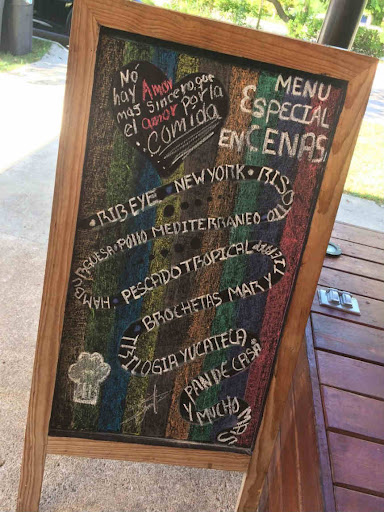 No
hay Amor
mas sincero, que
el amor por la
Comida
MENU
ESPECIAL
EN CENAS
· RIB EYE · NEW YORK · RISO
HAMBURGUESA · POLLO MEDITERRANEO ·
· PESCADO TROPICAL
BROCHETAS MAR Y
YUCATECA
PAN DE CASA
Y MUCHO MAS